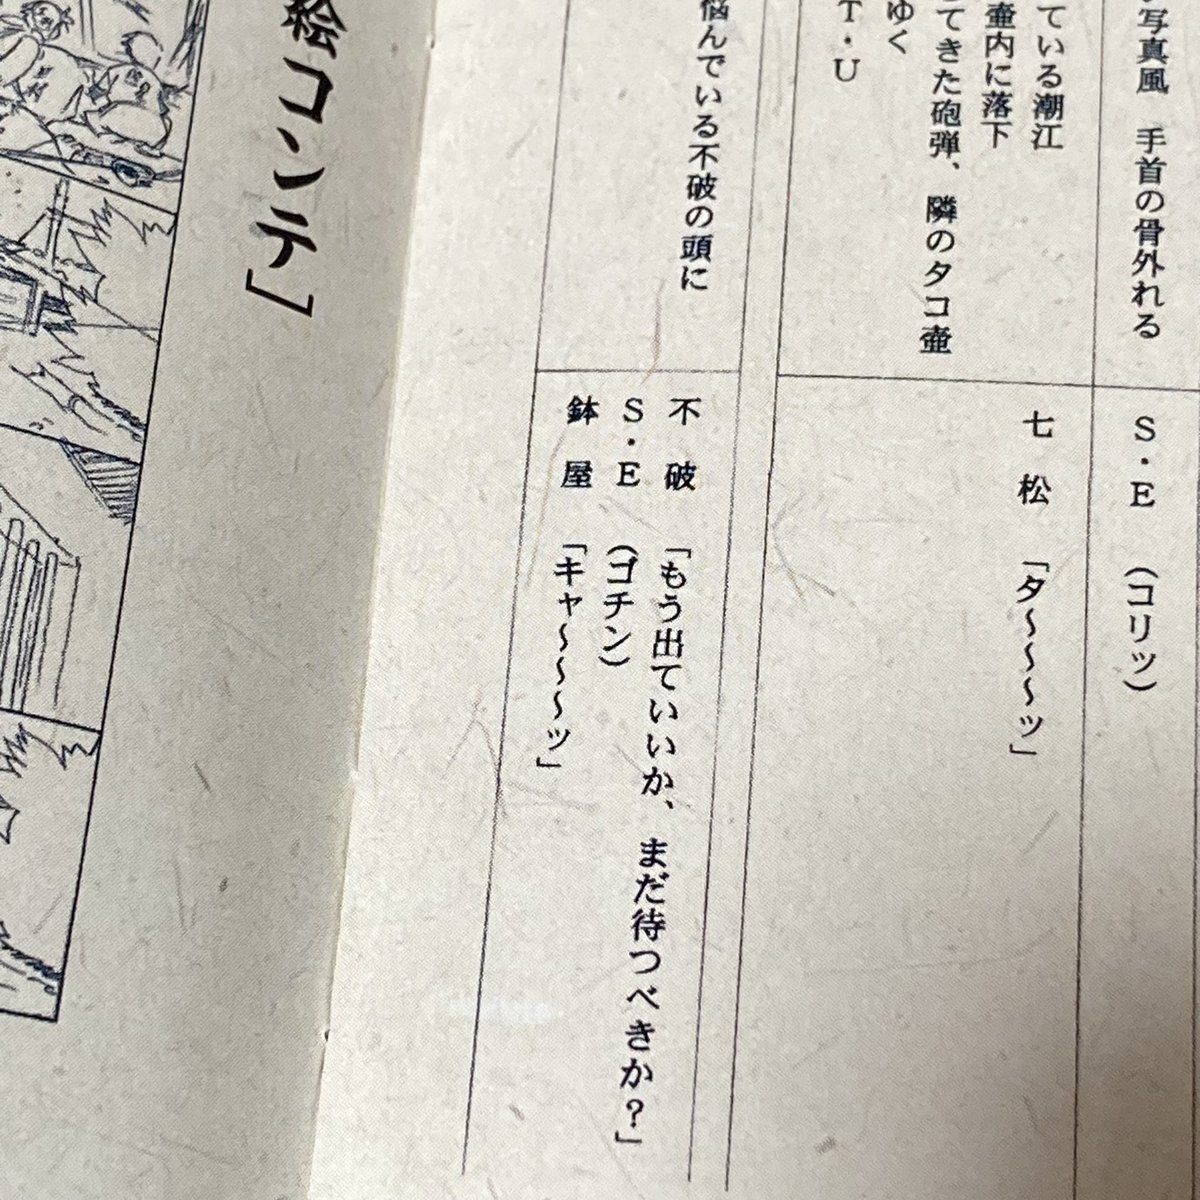 写真風　手首の骨外れる
S・E　（コリッ）
ている潮江
壷内に落下
七松　「タ〜〜〜〜ッ」
てきた砲弾、隣のタコ壷
ゆく
T・U
悩んでいる不破の頭に
不破　「もう出ていいか、まだ待つべきか？」
S・E　（ゴチン）
鉢屋　「キャ〜〜〜〜ッ」
絵コンテ」